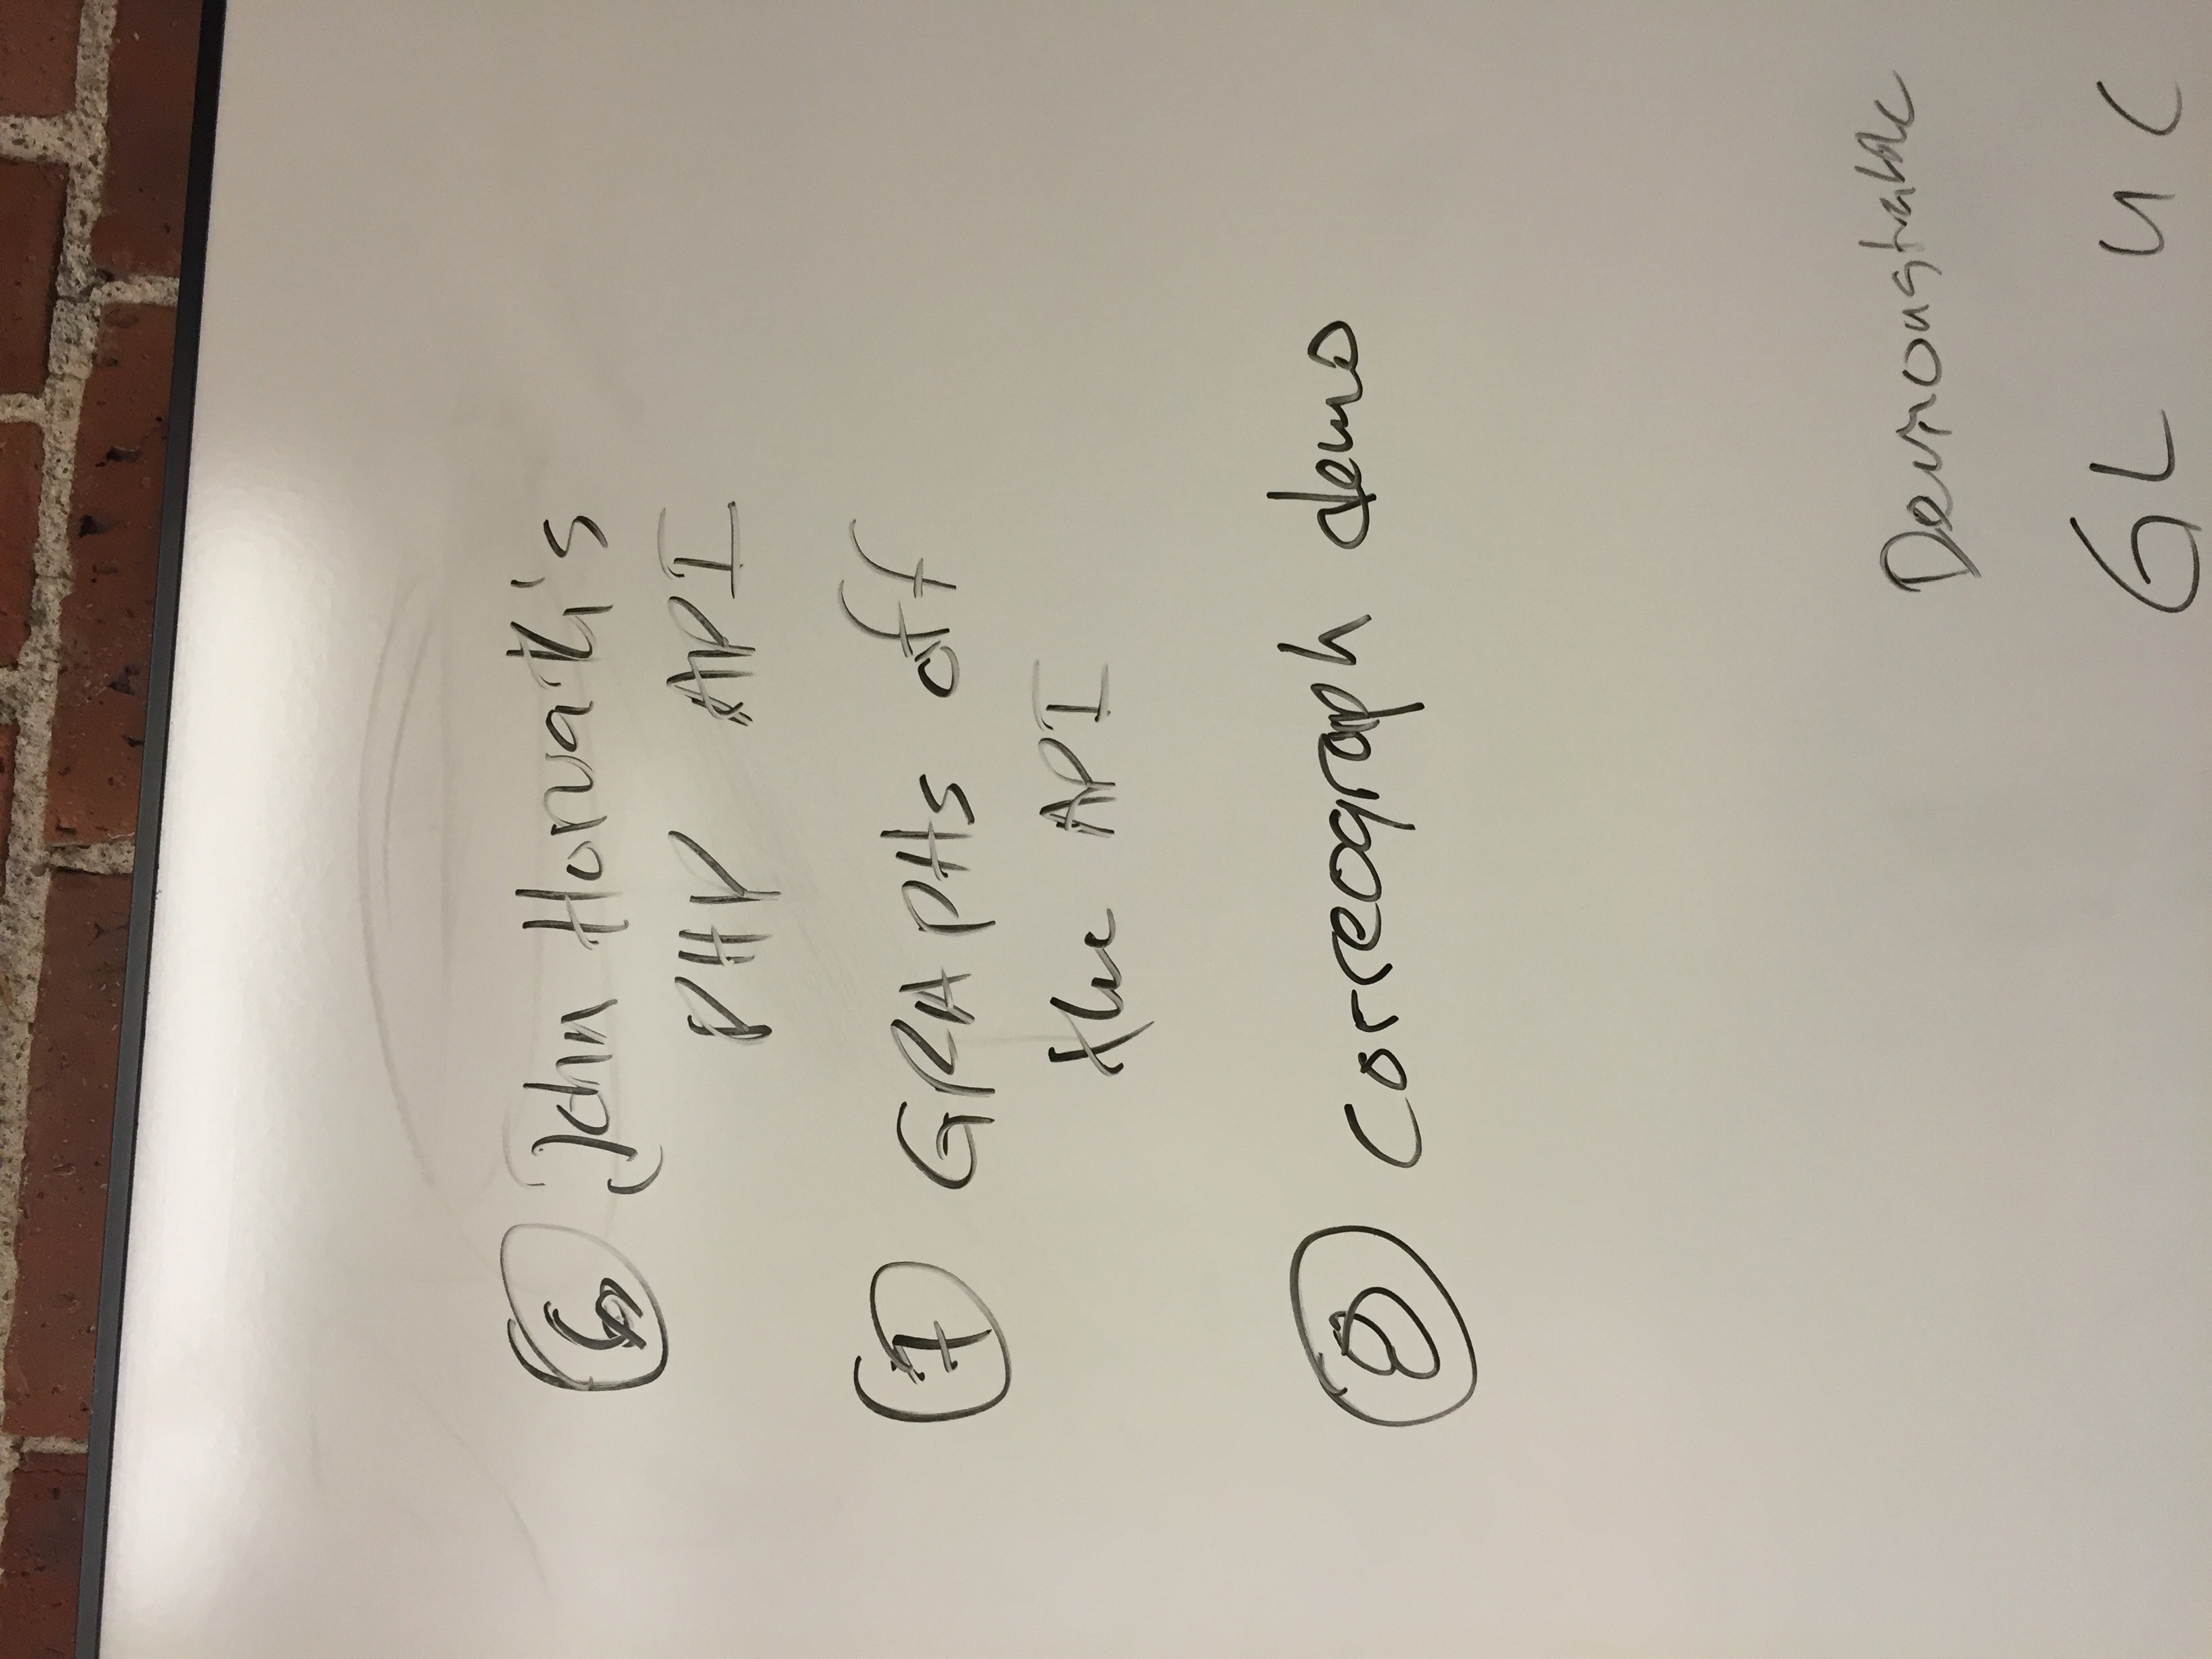 6 John Horvath's
PHP API
7 GRAPHS off
the API
8 correograph demo
Demonstrable
GL U C